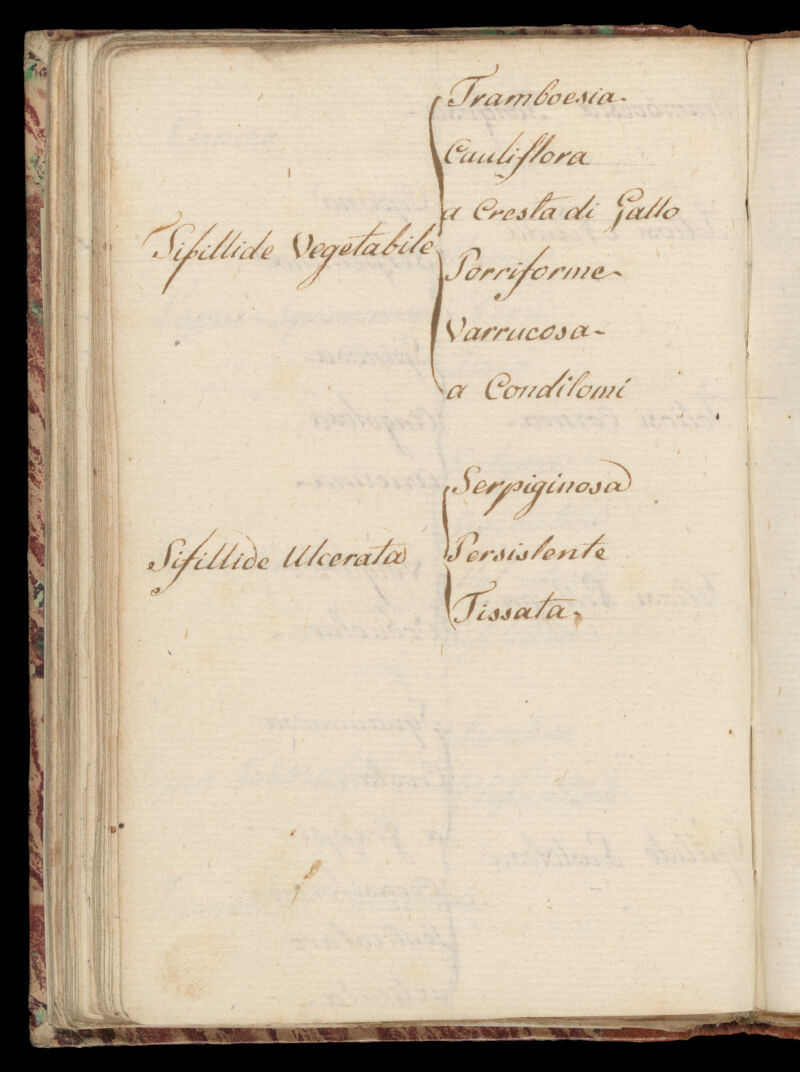 Framboesia.
Cauliflora
a Cresta di Gallo
Sifillide Vegetabile
Porriforme
Varrucosa
a Condilomi
Serpiginosa
Sifillide Ulcerata
Persistente
Fissata